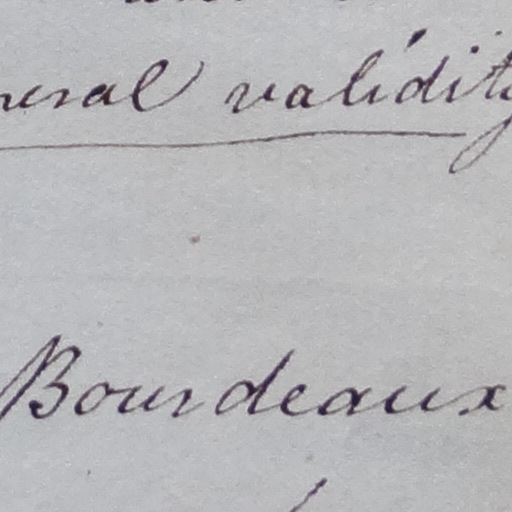 neral validity
Bourdeaux